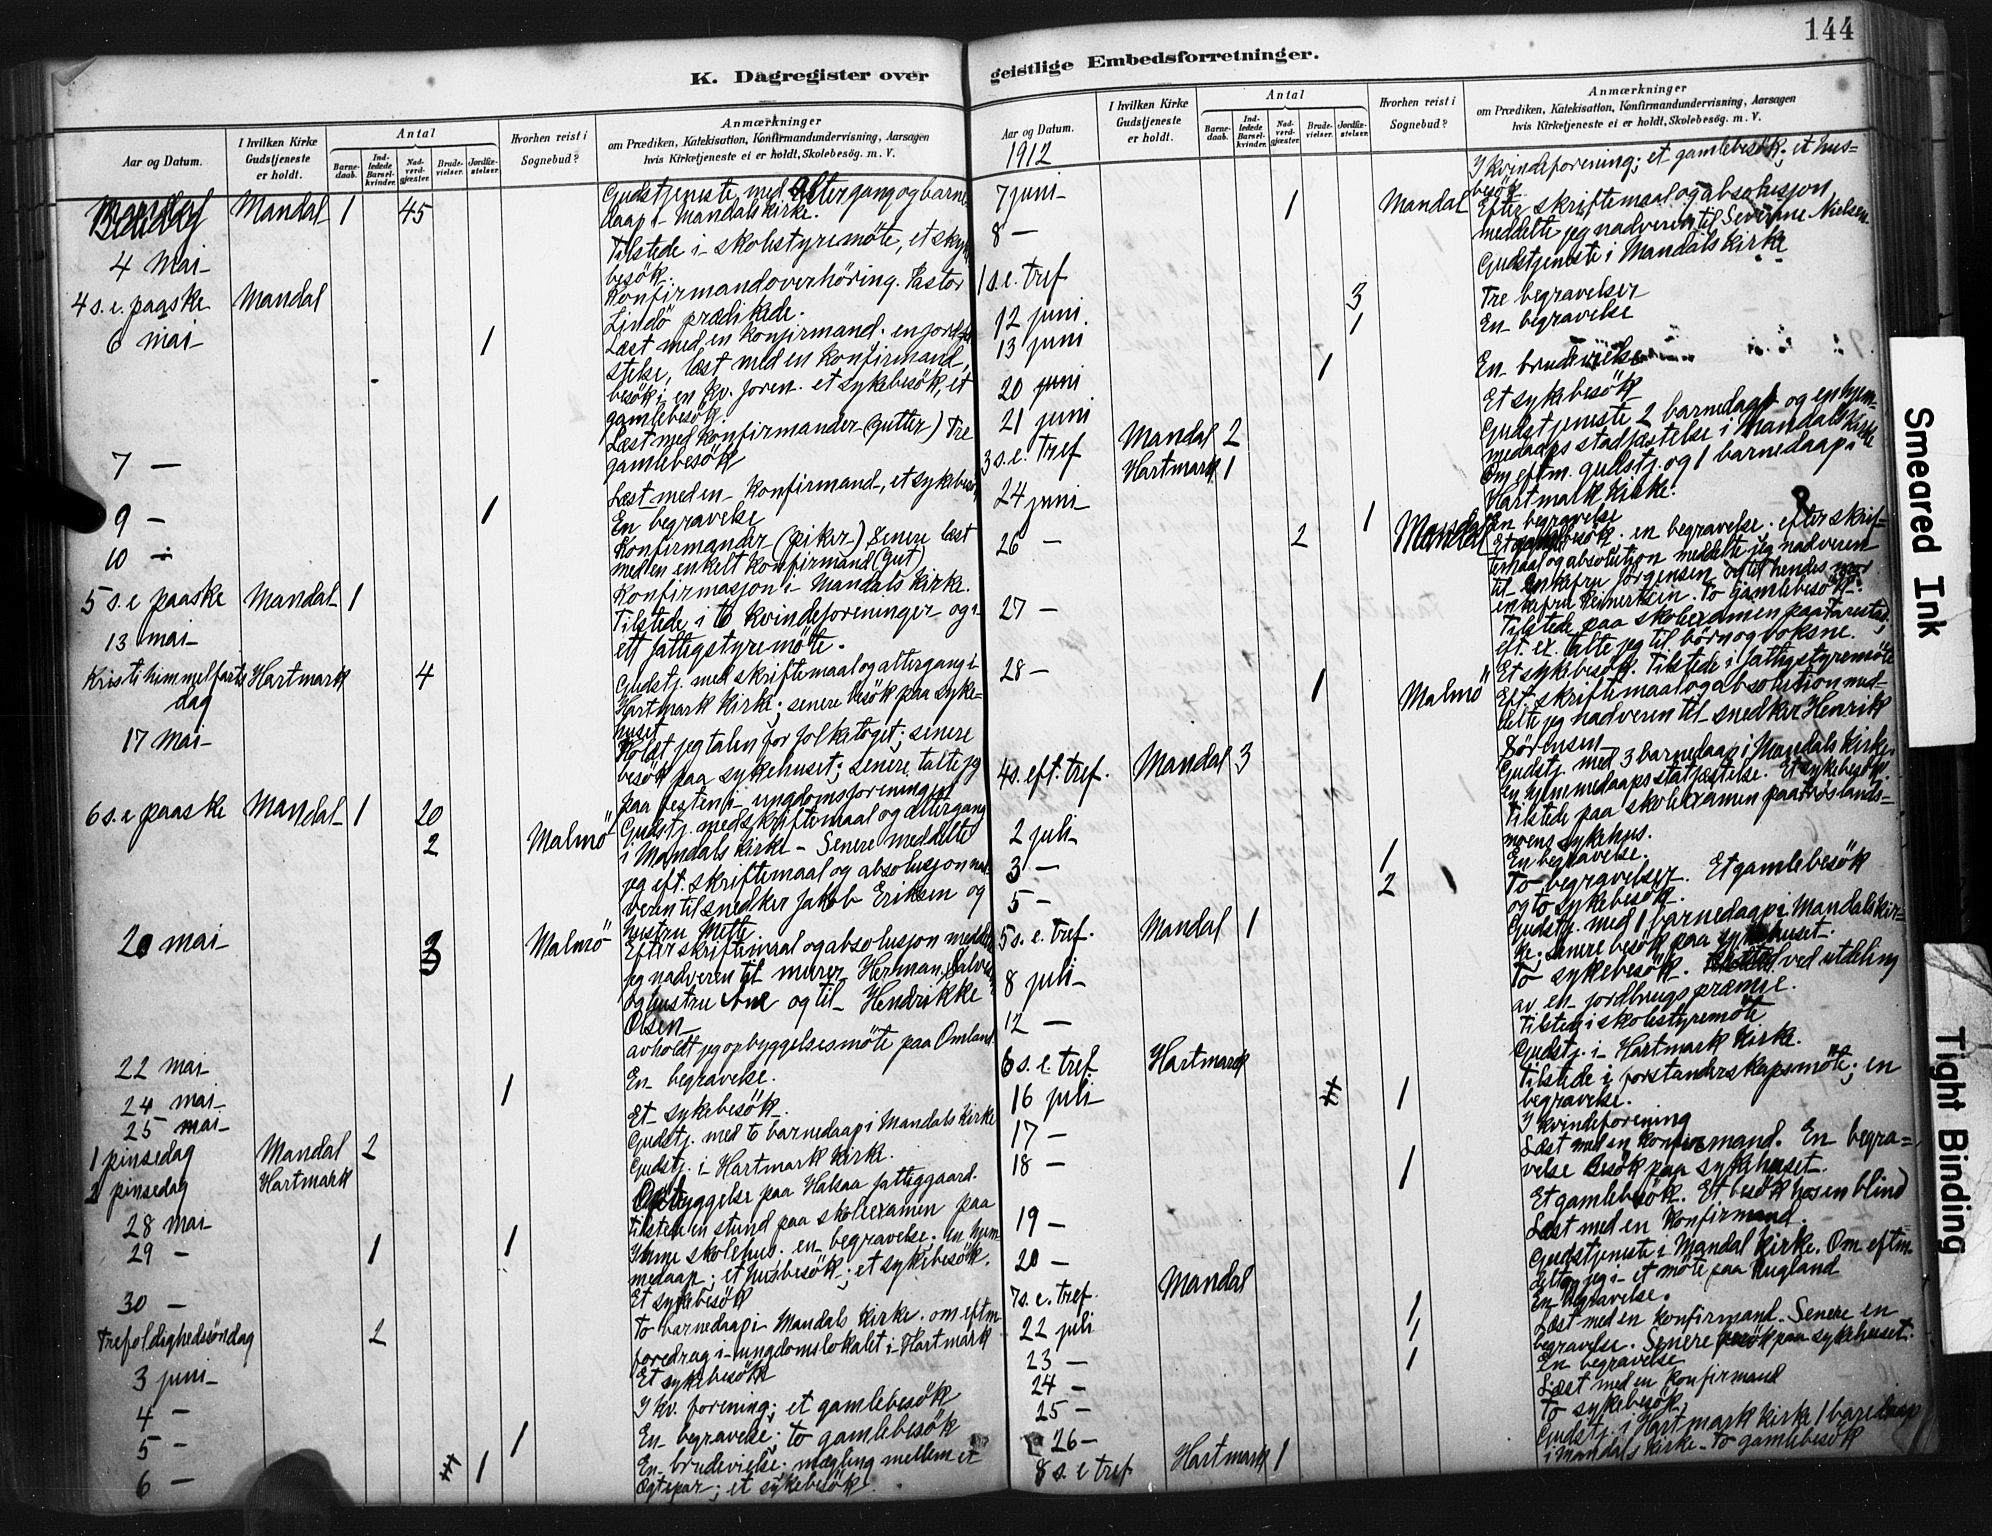 144
K. Dagregister over
geistlige Embedsforretninger.
Aar og Datum.
I hvilken Kirke Gudstjeneste er holdt.
Antal
Barnedaab.
Indledede Barselkvinder.
Nadverdgjæster.
Brudevielser.
Jordfæstelser.
Hvorhen reist i Sognebud?
Anmærkninger
om Prædiken, Katekisation, Konfirmandundervisning, Aarsagen
hvis Kirketjeneste ei er holdt, Skolebesøg. m. V.
Mandal 1 45 Gudstjeneste med altergang og barne
daap i Mandals kirke.
4 Mai Tilstede i skolestyremöte, et syke
besök.
4 s. e. paaske Mandal Konfirmandoverhöring. Pastor
Lindö prædikede.
6 mai 1 Læst med en konfirmand. en jordfæ
stelse, læst med en konfirmand,
besök i en kv. foren. et sykebesök, et
gamlebesök.
7 — Læst med konfirmander (gutter) Tre
gamlebesök
Læst med en konfirmand, et sykebesök
9 — 1 En begravelse
10 — Konfirmander (piker) Senere læst
med en enkelt konfirmand (gut)
5 s. e paaske Mandal 1 Konfirmasjon i Mandals kirke.
13 mai Tilstede i to kvindeforeninger og i
ett fattigstyremöte.
Kristi himmelfarts dag Hartmark 4 Gudstj. med skriftemaal og altergang i
Hartmark kirke; senere besök paa syke=
huset
17 Mai Holdt jeg talen for folketoget; senere
besök paa sykehuset; senere talte jeg
paa festen i ungdomsforeningen
6 s. e paaske Mandal 1 20 Gudstj. med skriftemaal og altergang
2 Malmö i Mandals kirke – Senere meddelte
jeg eft. skriftemaal og absolusjon nad
veren til snedker Jakob Eriksen og
hustru Mette
20 mai 3 Malmö Efter skriftemaal og absolusjon meddelte
jeg nadveren til murer Herman
og hustru Ane og til Hendrikke
Olsen
22 mai avholdt jeg opbyggelsesmöte paa Omland.
24 mai 1 En begravelse.
25 mai Et sykebesök.
1 pinsedag Mandal 2 Gudstj. med to barnedaap i Mandals kirke
2 pinsedag Hartmark Gudstj. i Hartmark kirke.
28 mai Opbyggelse paa Halsaa fattiggaard.
29 - 1 1 tilstede en stund paa skoleexamen paa
Ime skolehus. en begravelse. en hjem
medaap; et husbesök; et sykebesök.
30 — Et sykebesök
Trefoldighedsöndag 2 to barnedaap i Mandals kirke. om eftm
foredrag i ungdomslokalet i Hartmark
3 juni Et sykebesök
4 — I kv. forening; et gamlebesök
5 — 1 En begravelse; to gamlebesök
6 — 1 En brudevielse; mægling mellem et
Ægtepar; et sykebesök.
Aar og Datum.
1912
I hvilken Kirke Gudstjeneste er holdt.
Antal
Barnedaab.
Indledede Barselkvinder.
Nadverdgjæster.
Brudevielser.
Jordfæstelser.
Hvorhen reist i Sognebud?
Anmærkninger
om Prædiken, Katekisation, Konfirmandundervisning, Aarsagen
hvis Kirketjeneste ei er holdt, Skolebesøg. m. V.
7 juni I kvindeforening; et gamlebesök; et hus=
besök
8 — 1 Mandal Efter skriftemaal og absolusjon
meddelte jeg nadveren til Severine Nielsen.
1 s. e. tref Gudstjeneste i Mandals kirke
12 juni 3 Tre begravelser
13 juni 1 En begravelse
20 juni 1 En brudevielse
21 juni Et sykebesök
3 s. e. tref Mandal 2 Gudstjeneste 2 barnedaap og en hjem=
medaaps stadfæstelse i Mandals kirke
Hartmark 1 Om eftm. gudstj. og 1 barnedaap i
Hartmark kirke.
24 juni 1 En begravelse
26 — 2 Mandal besök. en begravelse. efter skrif=
temaal og absolution meddelte jeg nadveren
til Enkefru Jörgensen og til hendes mor
enkefru Reinertsen. to gamlebesök.
27 — Tilstede paa skoleexamen paa Tarestad;
eft. ex. talte jeg til börn og voksne.
28 — Et sykebesök. Tilstede i fattigstyremöte
1 Malmö Eft. skriftemaal og absolution med=
delte jeg nadveren til snedker Henrik
Sörensen
4 s. eft. tref. Mandal 3 Gudstj. med 3 barnedaap i Mandals kirke
en hjemmedaaps statfæstelse. Et sykebesök
2 juli Tilstede paa skoleexamen paa
moens sykehus.
3 — 1 En begravelse.
5 — 2 To begravelser. Et gamlebesök
og to sykebesök.
5 s. e. tref. Mandal 1 Gudstj. med 1 barnedaap i Mandals kir=
ke. senere besök paa sykehuset.
8 juli To sykebesök. ved utdeling
av en jordbrugspræmie.
12 — Tilstede i skolestyremöte
6 s. e. tref. Hartmark Gudstj. i Hartmark kirke.
16 juli 1 Tilstede i forstanderskapsmöte; en
begravelse.
17 — I kvindeforening
18 — 1 Læst med en konfirmand. En begra=
velse Besök paa sykehuset.
19 — Et gamlebesök. Et besök hos en blind
20 — Læst med en konfirmand.
7 s. e. tref. Mandal Gudstjeneste i Mandal kirke. Om eftm.
deltog jeg i et möte paa Ugland
22 juli 1 En begravelse.
23 — 1 Læst med en konfirmand. Senere en
begravelse. Senere besök paa sykehuset.
24 — 1 En begravelse
25 — Læst med en konfirmand
26 — To sykebesök,
8 s. e tref Hartmark 1 Gudstj. i Hartmark kirke 1 barnedaap
i Mandals kirke. to gamlebesök
Smeared Ink
Tight Binding